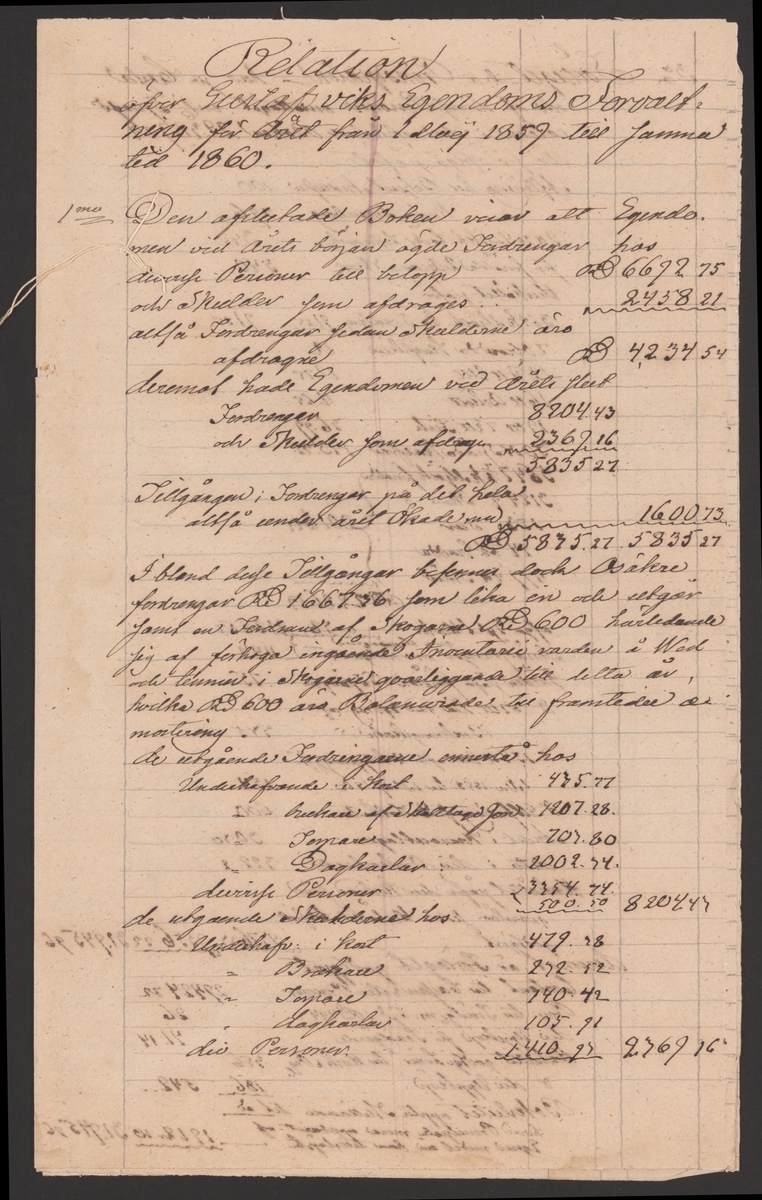 Relation
öfver Gustafsviks Egendoms Förvalt-
ning för Året från 1 Maij 1859 till samma
tid 1860.
1mo Den afslutade Boken visar att Egendo-
men vid Årets början ägde Fordrengar hos
diverse Personer till belopp RD 6692 75
och Skulder som afdrages 2458 21
altså Fordrengar sedan Skulderne äro
afdragne RD 4234 54
deremot hade Egendomen vid Årets slut
Fordrengar 8204 43
och Skulder som afdrages 2369 16
5835 27
Tillgången i Fordrengar på det hela
altså under året Ökade med 1600 73
RD 5835.27 5835 27
I bland desse Tillgångar befinnes dock Osäkre
fordrengar RD 1667 56 som lika en och utgör
samt en Fordran af Skogarne RD 600 härledande
sig af förhöga ingående Inventarie värden å Wed
och timmer i Skogarne qvarliggande till detta år,
hvilka RD 600 äro Balancerade till framtida a-
mortering
de utgående Fordringarne innestå hos
Underhafvande i Kort 435.77
brukare af 1207.28.
Torpare 703.80
" Dagkarlar 2002.74.
diverse Personer 3354.74.
500.50 8204 43
de utgående Skulderne hos
Underhafv: i Kort 479.38
" Brukare 232.52
" Torpare 140.42
" dagkarlar 105.91
div Personer 1410.93 2369 16